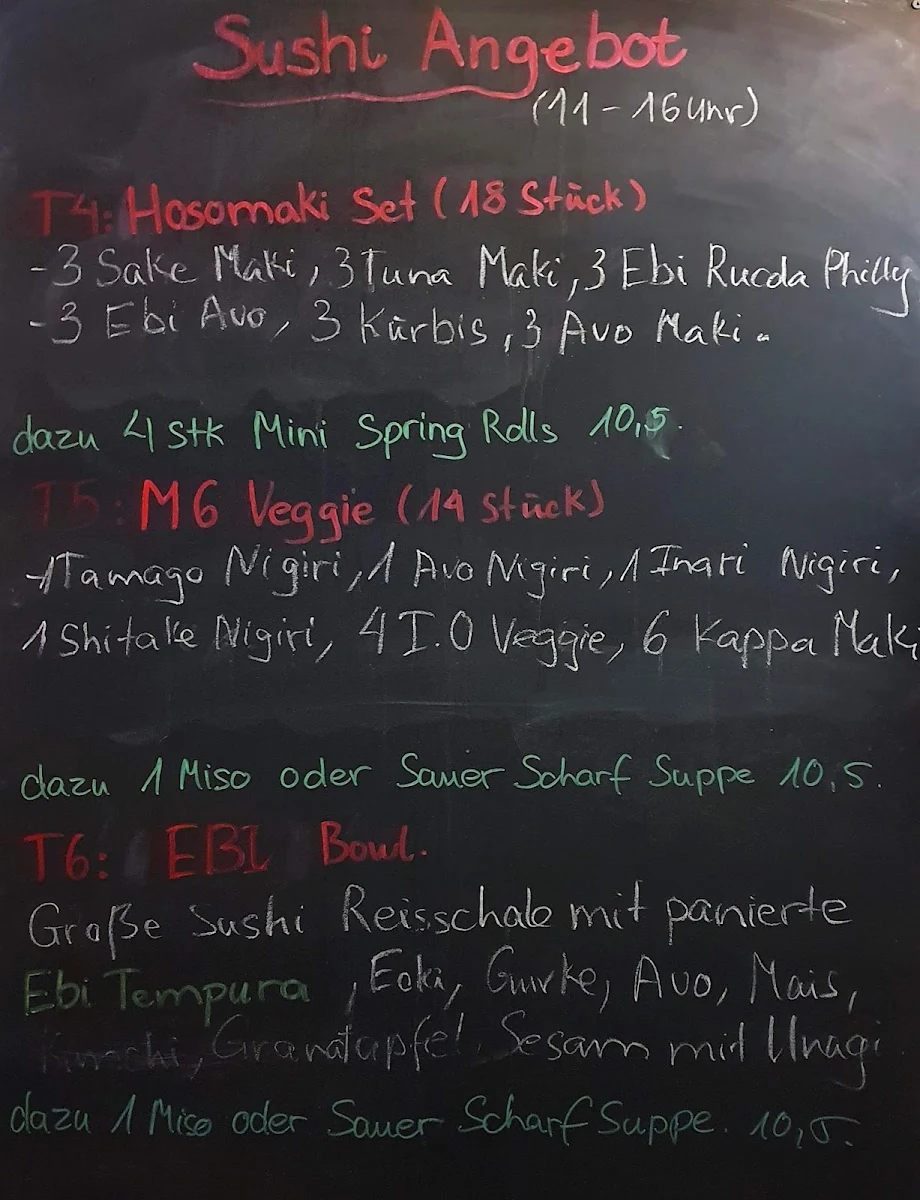 Sushi Angebot
(11-16 Uhr)
T4: Hosomaki Set (18 Stück)
-3 Sake Maki, 3 Tuna Maki, 3 Ebi Rucda Philly
-3 Ebi Avo, 3 Kürbis, 3 Avo Maki.
dazu 4 Stk Mini Spring Rolls 10,5.
T5: M6 Veggie (14 Stück)
-1 Tamago Nigiri, 1 Avo Nigiri, 1 Inari Nigiri,
1 Shitake Nigiri, 4 I.O Veggie, 6 Kappa Maki
dazu 1 Miso oder Sauer Scharf Suppe 10,5.
T6: EBI Bowl.
Große Sushi Reisschale mit panierte
Ebi Tempura, Gurke, Avo, Mais,
Granatapfel, Sesam mit Unagi
dazu 1 Miso oder Sauer Scharf Suppe. 10,5.